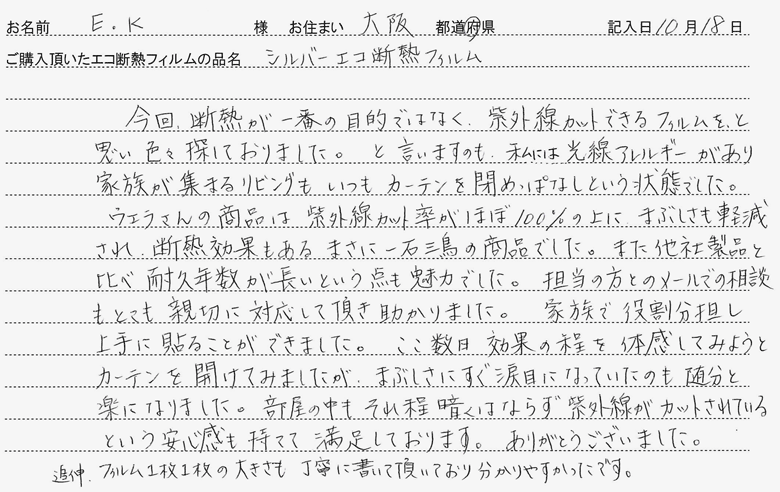 お名前 E.K 様 お住まい 大阪 都道府県 記入日 10 月 18 日
ご購入頂いたエコ断熱フィルムの品名 シルバーエコ断熱フィルム
今回、断熱が一番の目的ではなく、紫外線カットできるフィルムを、と
思い色々探しておりました。 と言いますのも、私には光線アレルギーがあり
家族が集まるリビングもいつもカーテンを閉めっぱなしという状態でした。
ウエラさんの商品は紫外線カット率がほぼ100%の上に、まぶしさも軽減
され、断熱効果もあるまさに一石三鳥の商品でした。 また他社製品と
比べ耐久年数が長いという点も魅力でした。 担当の方とのメールでの相談
もとても親切に対応して頂き助かりました。 家族で役割分担し
上手に貼ることができました。 ここ数日効果の程を体感してみようと
カーテンを開けてみましたが、まぶしさにすぐ涙目になっていたのも随分と
楽になりました。部屋の中もそれ程暗くはならず紫外線がカットされている
という安心感も持てて満足しております。 ありがとうございました。
追伸、フィルム1枚1枚の大きさも丁寧に書いて頂いており分かりやすかったです。